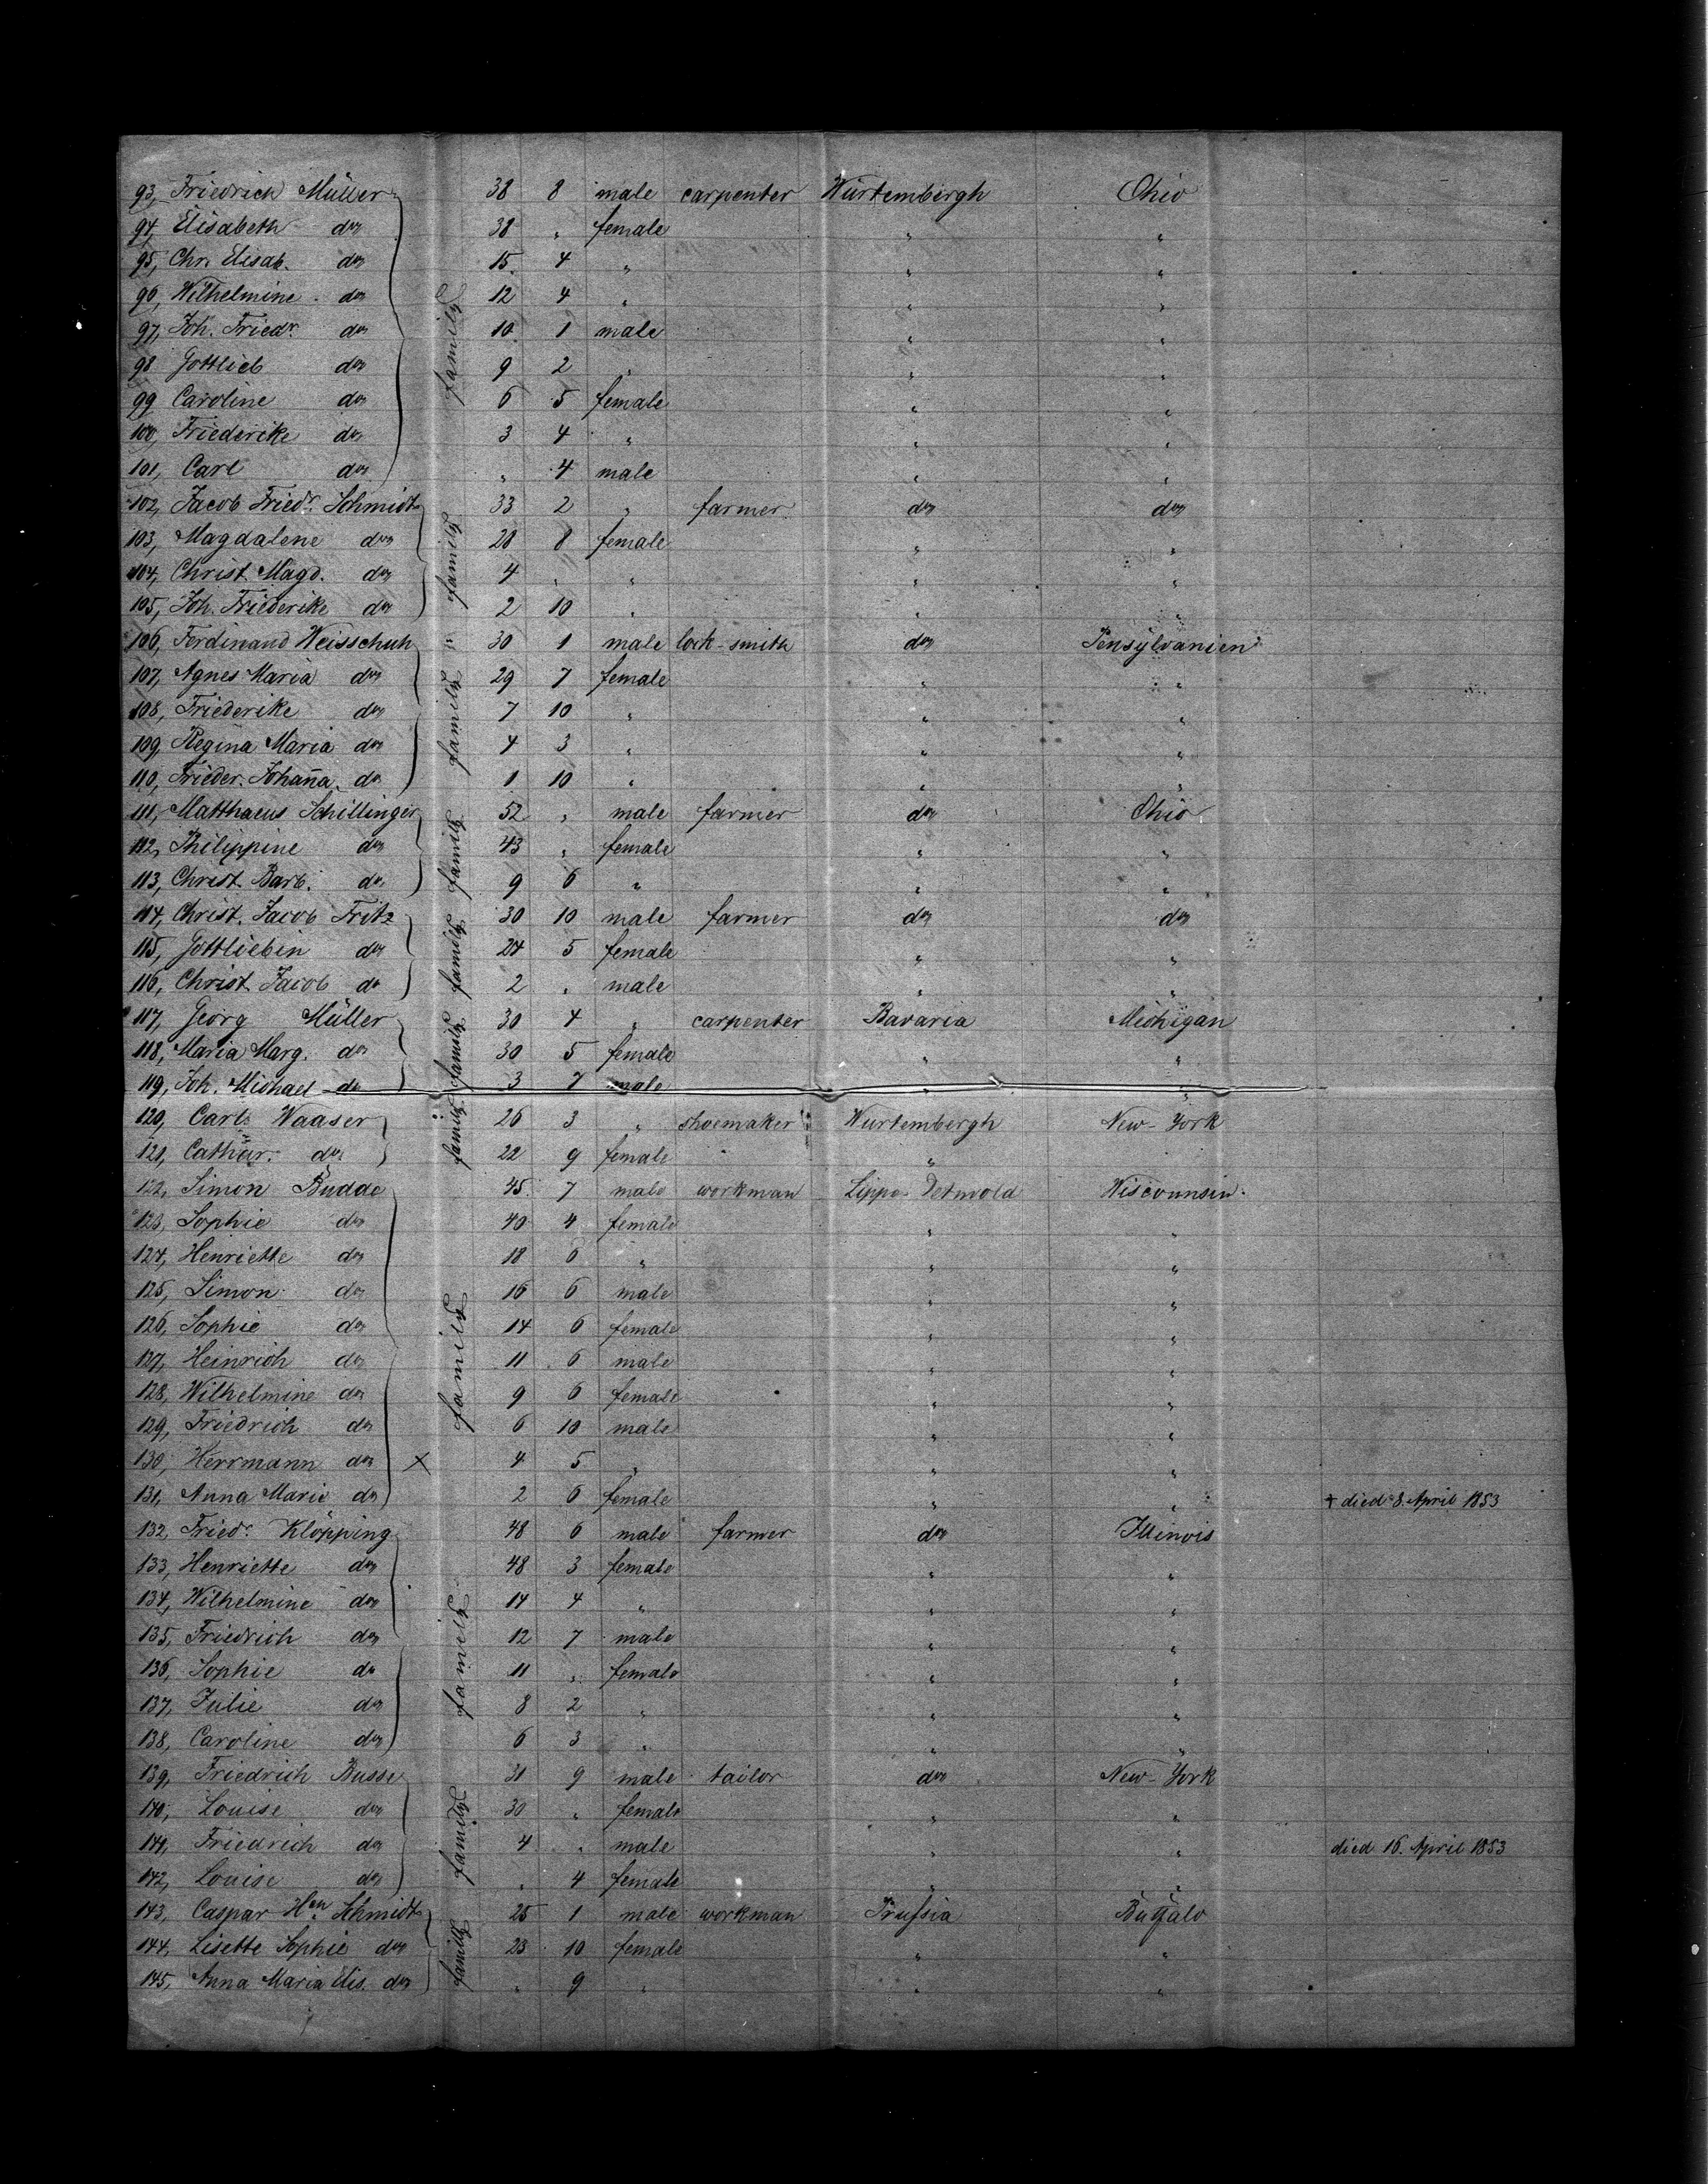 93, Friedrich Müller 38 8 male carpenter Würtembergh Ohio
94, Elisabeth do 38 " female " "
95, Chr. Elisab. do 15 4 " " "
96, Wilhelmine do 12 4 " " "
97, Joh. Friedr. do 10 1 male " "
98 Gottlieb do 9 2 " " "
99 Caroline do 6 5 female " "
100, Friederike do 3 4 " " "
101, Carl do " 4 male " "
family
102, Jacob Friedr. Schmidt 33 2 " farmer do do
103, Magdalene do 28 8 female " "
104, Christ. Magd. do 4 " " " "
105, Joh. Friederike do 2 10 " " "
family
106, Ferdinand Weisschuh 30 1 male lock-smith do Pensylvanien
107, Agnes Maria do 29 7 female " "
108, Friederike do 7 10 " " "
109, Regina Maria do 4 3 " " "
110, Frieder. Johan̄a do 1 10 " " "
family
111, Matthaeus Schillinger 52 " male farmer do Ohio
112, Philippine do 43 " female " "
113, Christ. Barb. do 9 6 " " "
family
114, Christ. Jacob Fritz 30 10 male farmer do do
115, Gottliebin do 24 5 female " "
116, Christ. Jacob do 2 " male " "
family
117, Georg Müller 30 4 " carpenter Bavaria Michigan
118, Maria Marg. do 30 5 female " "
119, Joh. Michael do 3 7 male " "
family
120, Carl Waaser 26 3 " shoemaker Würtembergh New-York
121, Cathar. do 22 9 female " "
family
122, Simon Budde 45 7 male workman Lippe-Detmold Wiscounsin
123, Sophie do 40 4 female " "
124, Henriette do 18 6 " " "
125, Simon do 16 6 male " "
126, Sophie do 14 6 female " "
127, Heinrich do 11 6 male " "
128, Wilhelmine do 9 6 female " "
129, Friedrich do 6 10 male " "
130, Herrmann do × 4 5 " " "
131, Anna Marie do 2 6 female " " † died 8. April 1853
family
132, Friedr. Klöpping 48 6 male farmer do Illinois
133, Henriette do 48 3 female " "
134, Wilhelmine do 14 4 " " "
135, Friedrich do 12 7 male " "
136, Sophie do 11 " female " "
137, Julie do 8 2 " " "
138, Caroline do 6 3 " " "
family
139, Friedrich Busse 31 9 male tailor do New-York
140, Louise do 30 " female " "
141, Friedrich do 4 " male " " died 16. April 1853
142, Louise do " 4 female " "
family
143, Caspar Hen Schmidt 25 1 male workman Prussia Buffalo
144, Lisette Sophie do 23 10 female " "
145, Anna Maria Elis. do " 9 " " "
family